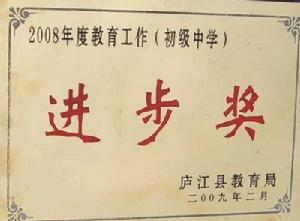 2008年度教育工作（初级中学）
进步奖
庐江县教育局
二00九年二月